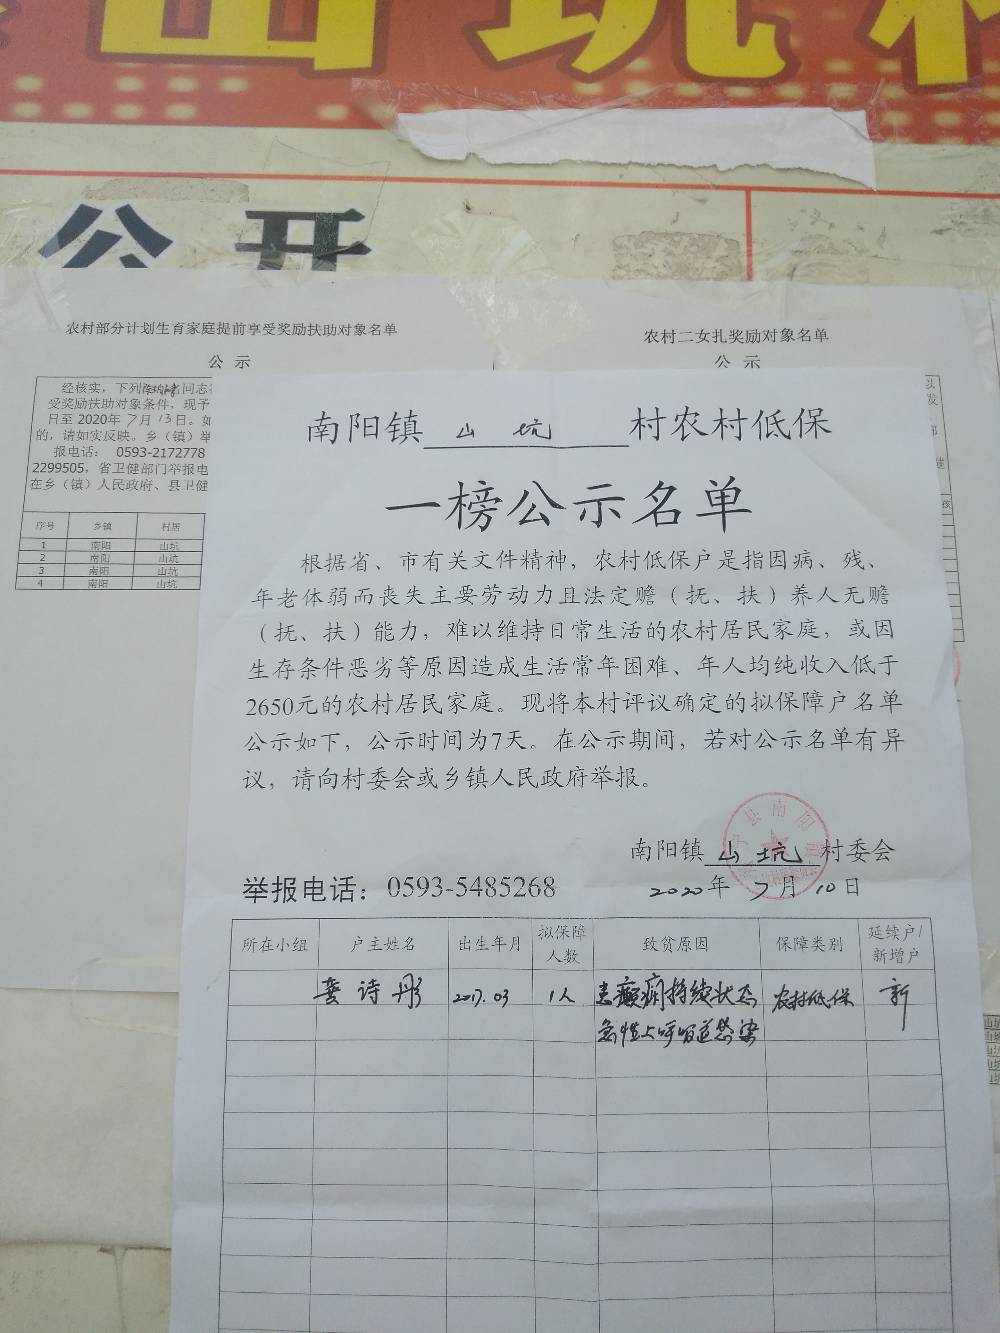 山坑村
公开
农村部分计划生育家庭提前享受奖励扶助对象名单
公示
经核实，下列
同志
受奖励扶助对象条件，现予
日至 2020年7月13日。如
的，请如实反映。乡（镇）举
报电话： 0593-2172778
2299505，省卫健部门举报电
在乡（镇）人民政府、县卫健
序号 乡镇 村居
1 南阳 山坑
2 南阳 山坑
3 南阳 山坑
4 南阳 山坑
农村二女扎奖励对象名单
公示
南阳镇 山坑 村农村低保
一榜公示名单
根据省、市有关文件精神，农村低保户是指因病、残、
年老体弱而丧失主要劳动力且法定赡（抚、扶）养人无赡
（抚、扶）能力，难以维持日常生活的农村居民家庭，或因
生存条件恶劣等原因造成生活常年困难、年人均纯收入低于
2650元的农村居民家庭。现将本村评议确定的拟保障户名单
公示如下，公示时间为7天。在公示期间，若对公示名单有异
议，请向村委会或乡镇人民政府举报。
南阳镇 山坑 村委会
举报电话：0593-5485268
2020年7月10日
所在小组 户主姓名 出生年月 拟保障人数 致贫原因 保障类别 延续户/新增户
龚诗彤 2017.03 1人 患癫痫持续状态 农村低保 新
急性上呼吸道感染